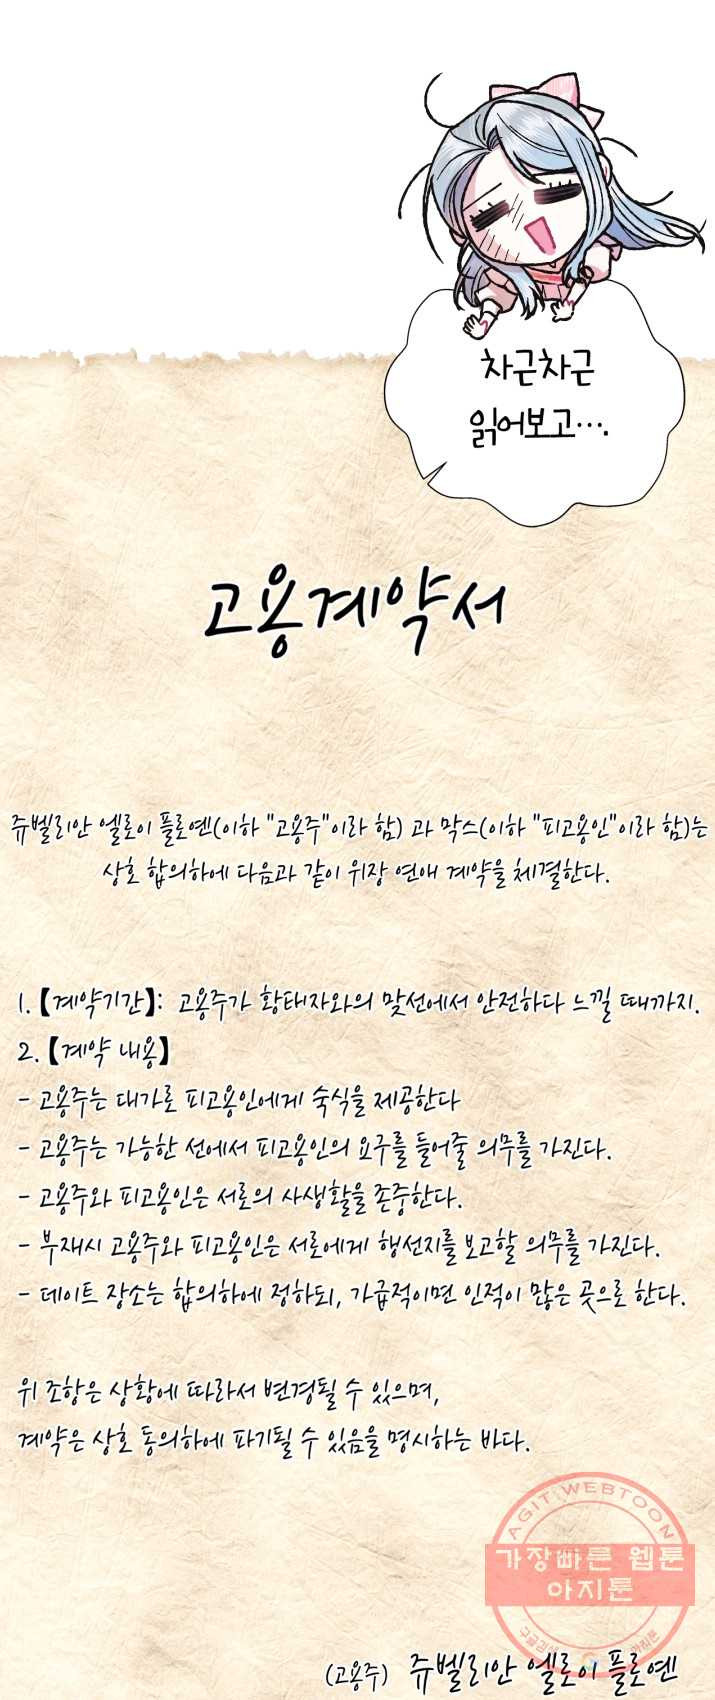 차근차근
읽어보고···.
고용계약서
쥬벨리안 엘로이 플로엔(이하 "고용주"이라 함) 과 막스(이하 "피고용인"이라 함)는
상호 합의하에 다음과 같이 위장 연애 계약을 체결한다.
1. 【계약기간】: 고용주가 황태자와의 맞선에서 안전하다 느낄 때까지.
2. 【계약 내용】
- 고용주는 대가로 피고용인에게 숙식을 제공한다
- 고용주는 가능한 선에서 피고용인의 요구를 들어줄 의무를 가진다.
- 고용주와 피고용인은 서로의 사생활을 존중한다.
- 부재시 고용주와 피고용인은 서로에게 행선지를 보고할 의무를 가진다.
- 데이트 장소는 합의하에 정하되, 가급적이면 인적이 많은 곳으로 한다.
위 조항은 상황에 따라서 변경될 수 있으며,
계약은 상호 동의하에 파기될 수 있음을 명시하는 바다.
AGIT WEBTOON
가장빠른 웹툰
아지툰
구글검색
(고용주) 쥬벨리안 엘로이 플로엔